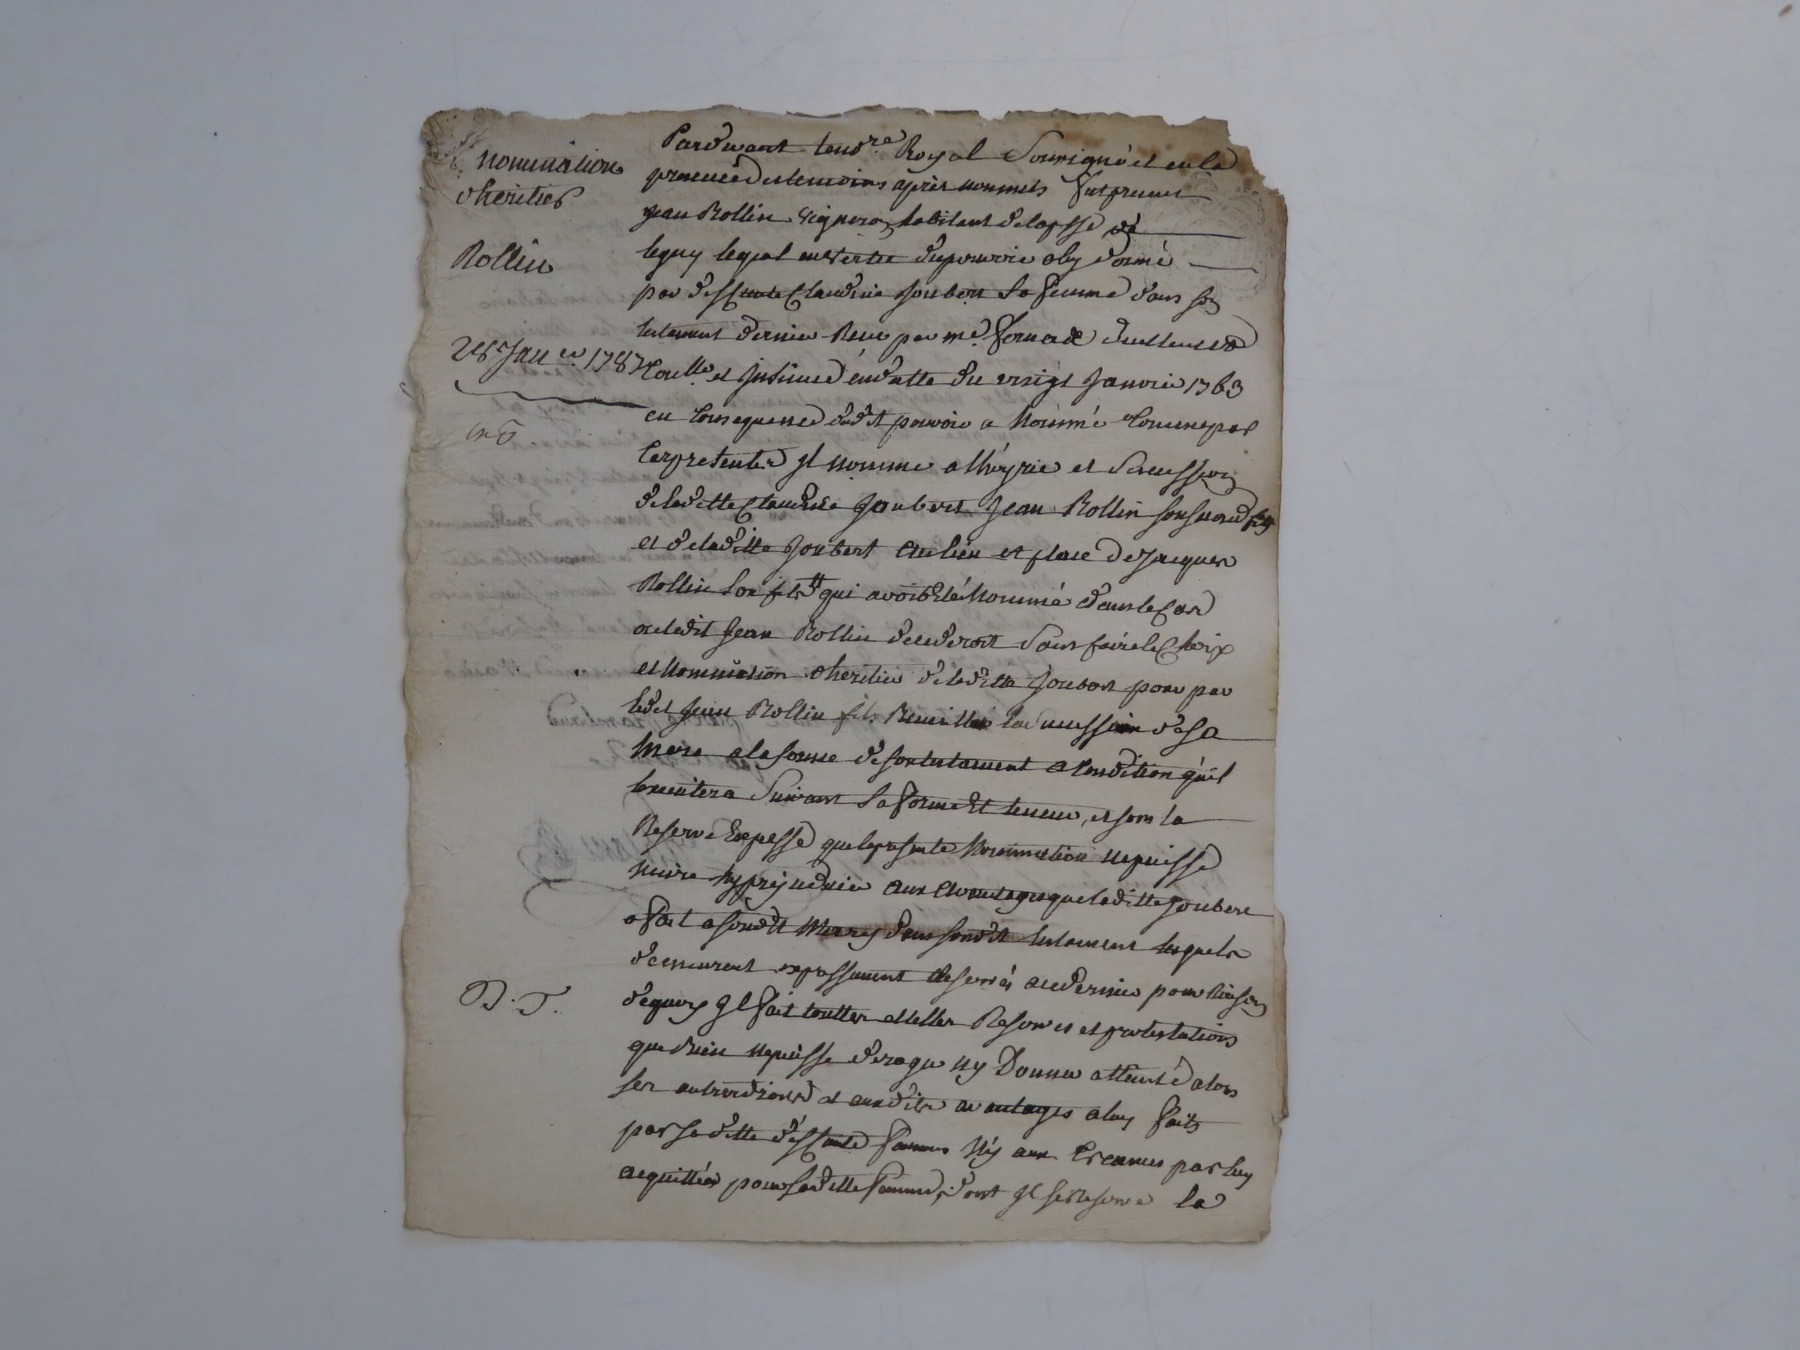 nomination
d'heritier
Rollin
28 Janer. 1787
D. T.
Pardevant Royal Soussigné et en la
presence des temoins après nommés fut present
jean Rollin vigneron habitant de la psse de
lequel en vertu du pouvoir a luy donné
par deffunte Claudine Joubert sa femme dans son
testament dernier Receu par me.
et Insinué en datte du vingt Janvier 1763
en Consequence dudit pouvoir a Nommé Comme par
Ces presentes Il nomme a l'hoyrie et Succession
de laditte Claudine Joubert Jean Rollin son fils
et de laditte Joubert au lieu et place de Jacques
Rollin son fils qui avoit été Nommé dans le Cas
ou ledit Jean Rollin decederoit Sans faire le Choix
et Nomination d'heritier de laditte Joubert pour par
ledit Jean Rollin fils Recueillir la Succession de sa
Mere a la forme de son testament a Condition qu'il
l'executera Suivant sa forme Et teneur, et sous la
Reserve Expresse que la presente Nomination ne puisse
nuire ny prejudicier aux avantages que laditte Joubert
a fait a sondit Marry dans sondit testament lesquels
demeurent expressement Reservés au dernier pour Raison
de quoy Il fait touttes et telles Reserves et protestations
que Rien ne puisse deroger ny Donner atteinte a tous
ses autres droits et auxdits avantages a luy faits
par sa ditte deffunte femme Ny aux par luy
acquittées pour saditte femme, dont Il se Reserve la